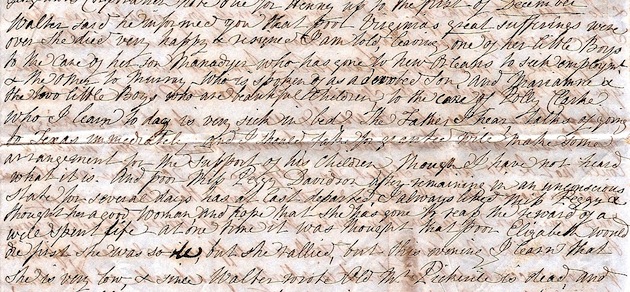 have one for Henny up to the first of December
Walter said he informed you that poor great sufferings were
over she died very happy & resigned I am told leaving one of her little Boys
to the care of her son who has gone to New Orleans to seek employment
& the other to Murray who is spoken of as a devoted Son, and Mariamne &
the two little Boys who are beautiful Children, to the care of Polly
who I learn to day is very sick in bed. The Father, I hear talks of going
to Texas immediately, and I take for granted will make some
arrangement for the support of his Children though I have not heard
what it is. And poor Miss Peggy Davidson after remaining in an unconscious
state for several days has at last departed, I always liked Miss Peggy &
thought her a good Woman and hope that she has gone to reap the reward of a
well spent life at one time it was thought that poor Elizabeth would
die first she was so ill but she rallied, but this morning I learn that
She is very low & since Walter wrote Old Mr is dead, and